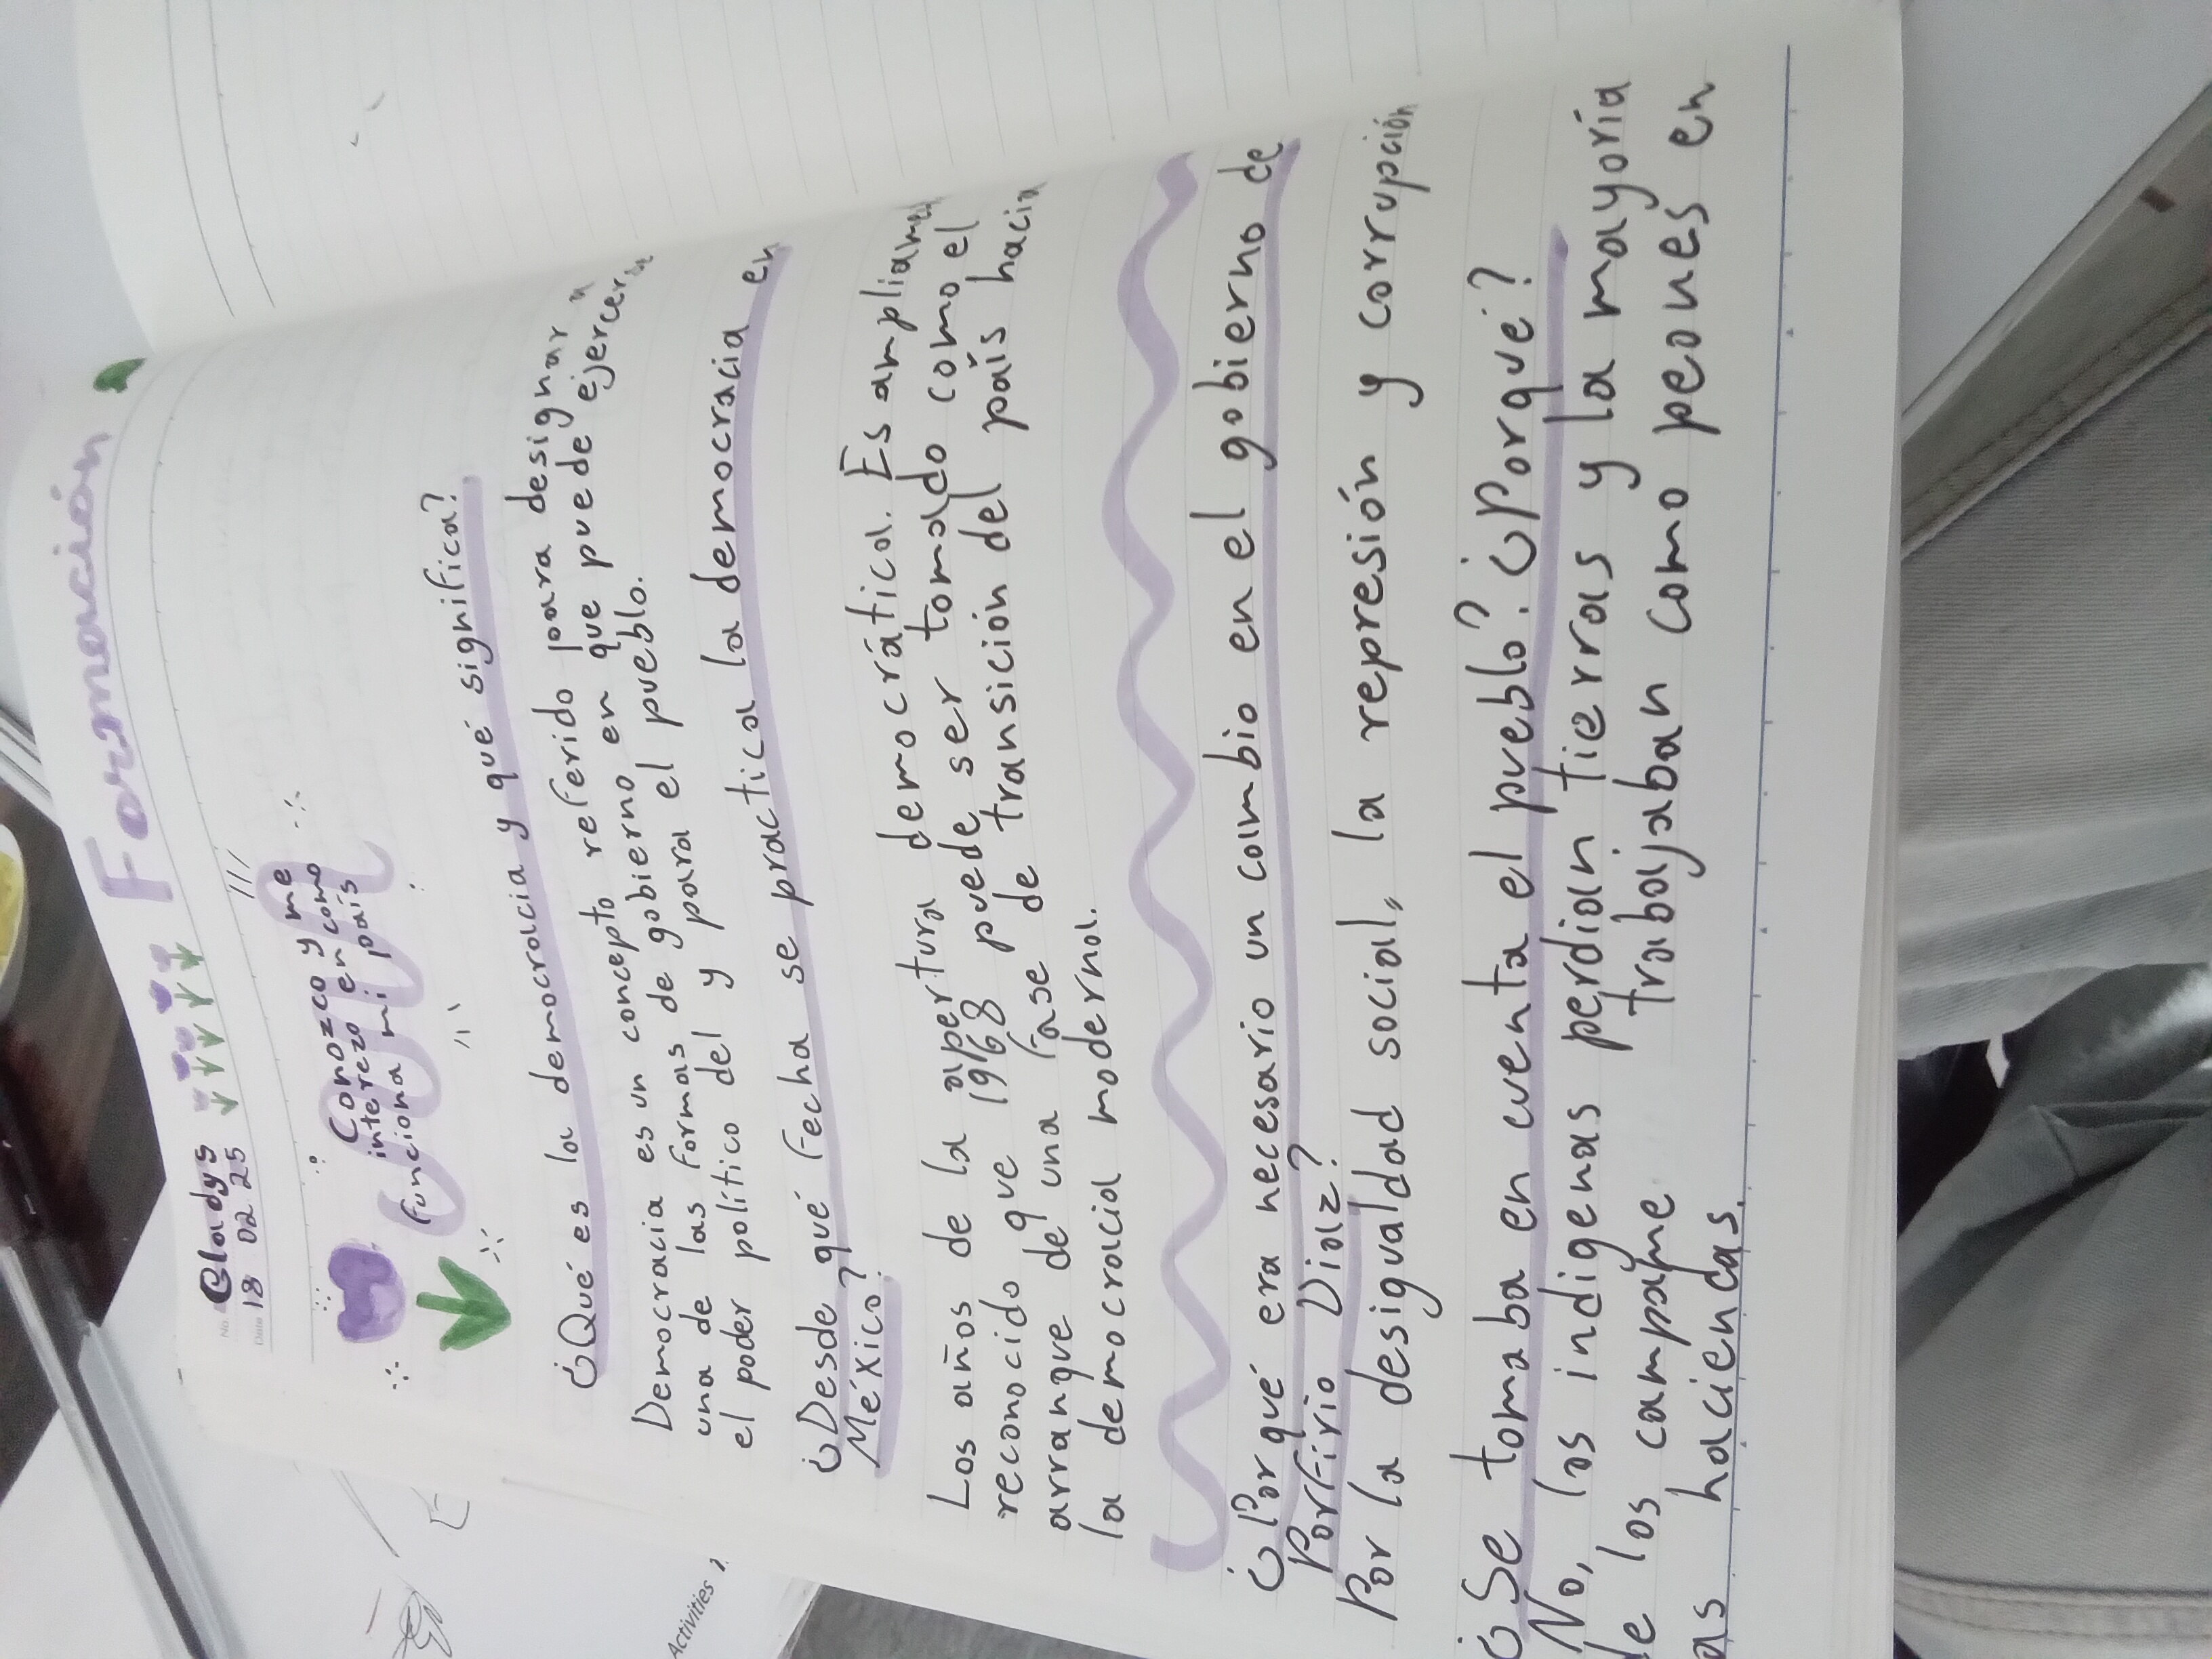 Formación
No. Gladys
Date 18 02 25
Conozco y me
interezo en como
funciona mi país
¿Qué es la democracia y qué significa?
Democracia es un concepto referido para designar a
una de las formas de gobierno en que puede ejercerse
el poder político del y para el pueblo.
¿Desde qué fecha se practica la democracia en
México?
Los años de la apertura democrática. Es ampliame
reconocido que 1968 puede ser tomado como el
arranque de una fase de transición del país hacia
la democracia moderna.
¿Porqué era necesario un cambio en el gobierno de
Porfirio Diaz?
Por la desigualdad social, la represión y corrupción
¿Se tomaba en cuenta el pueblo? ¿Porqué?
No, las indigenas perdian tierras y la mayoría
de los campame trabajaban como peones en
as haciendas.
Activities